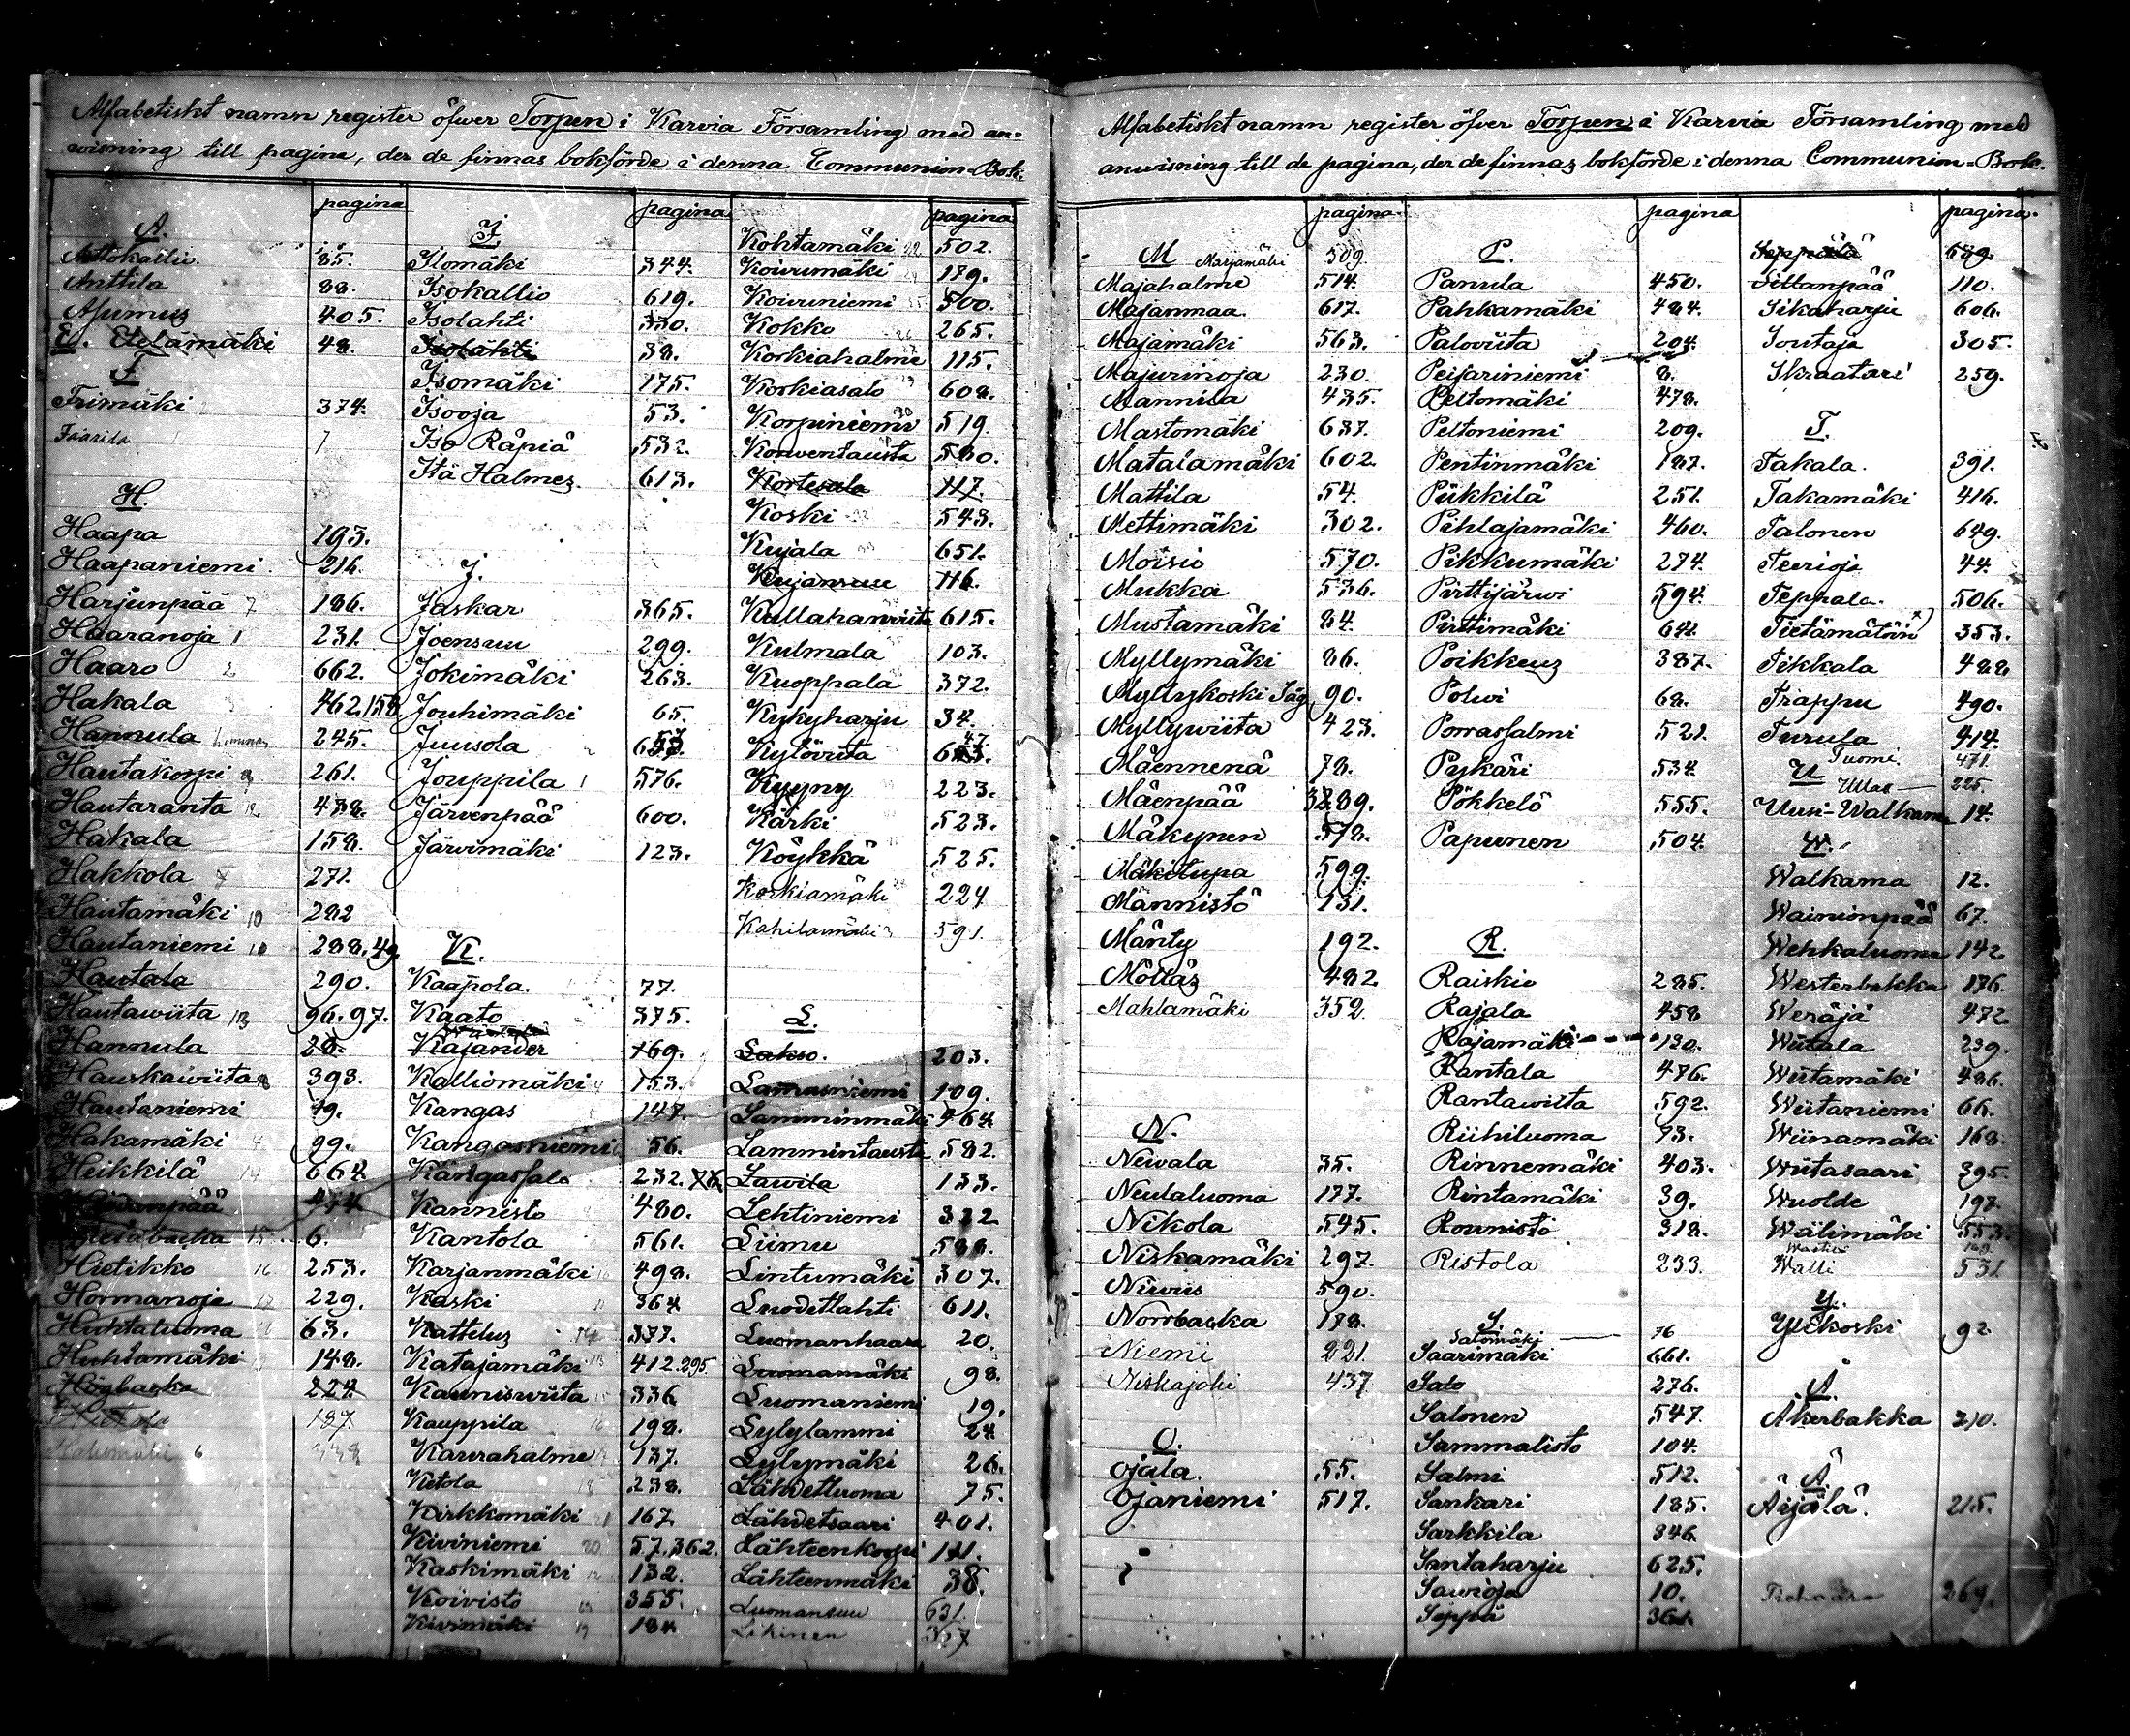 Alfabetiskt namn register öfwer Torpen i Karvia Församling med an-
wisning till pagina, der de finnas bokförde i denna Communion-Bok.
pagina
A.
Attokallio. 35.
Anttila 88.
Asumus 405.
E. Etelämäki 48.
F
Frimäki 374.
Faarila 7
H.
Haapa 193.
Haapaniemi. 216.
Harjunpää 7 186.
Haaranoja 1 231.
Haaro 2 662.
Hakala 462,158
Hannula 245.
Hautakorpi 261.
Hautaranta 12 438.
Hakala 158.
Hakkola 271.
Hautamäki 10 282
Hautaniemi 10 288,49.
Hautala 290.
Hautawiita 13 96.97.
Hannula 28.
Hauskawiita 393.
Hautaniemi 49.
Hakamäki 4 99.
Heikkilä 14 664.
6.
Hietikko 16 253.
Hormanoja 229.
Huhtaluoma 63.
Huhtamäki 148.
Högbacka 224.
187.
6 338
pagina
I.
Ilomäki 344.
Isokallio 619.
Isolahti 330.
Isolahti 38.
Isomäki 175.
Isooja 53.
Iso Räpiä 532.
Itä Halmes. 613.
J.
Jaskar 365.
Joensuu 299.
Jokimäki 263.
Jouhimäki 65.
Juusola
Jouppila 1 576.
Järvenpää 600.
Järvimäki 123.
K.
Kaapola. 77.
Kaato 375.
Kajander 169.
Kalliomäki 4 153.
Kangas 147.
Kangasniemi 56.
Kangassalo 232.
Kannisto 480.
Kantola 561.
Karjanmäki 498.
Kaski 364
Kattelus 377.
Katajamäki 13 412.295
Kauniswiita 336
Kauppila 16 198.
Kaurahalme 137.
Ketola 18 238.
Kirkkomäki 21 167
Kiviniemi 20 57.362.
Kaskimäki 12 132.
Koivisto 355.
Kivimäki 19 184
pagina
Kohtamäki 22 502.
Koivumäki 189.
Koivuniemi 500.
Kokko 265.
Korkiahalme 115.
Korkiasalo 608.
Korpiniemi 30 519.
Korwentausta 580.
Kortesalo 117.
Koski 32 543.
Kujala 33 651.
Kujansuu 116.
Kullahanwiita 615.
Kulmala 103.
Kuoppala 372.
Kykyharju 34.
Kylöwiita
Kyyny 223.
Kärki 523.
Köykkä 525.
Korkiamäki 224
Kahilamäki 591.
L.
Lakso. 203.
Lamasniemi 109.
Lamminmäki 464
Lammintausta 582.
Lawila 133.
Lehtiniemi 322
Liimu 586.
Lintumäki 307.
Luodetlahti 611.
Luomanhaara 20.
Luomamäki 98.
Luomaniemi 19.
Lylylammi 24
Lylymäki 26.
Lähdetluoma 75.
Lähdetsaari 401.
Lähteenkorpi 111.
Lähteenmäki 38.
Luomansuu 631.
Likinen 327
Alfabetiskt namn register öfver Torpen i Karvia Församling med
anvisning till de pagina, der de finnas bokförde i denna Communion-Bok.
pagina.
M Marjamäki 509.
Majahalme 514.
Majanmaa. 617.
Majamäki 563.
Majurinoja 230.
Mannila 435.
Mastomäki 637.
Matalamäki 602.
Mattila 54.
Mettimäki 302.
Moisio 570.
Mukka 536.
Mustamäki 84.
Myllymäki 86.
Myllykoski Såg 90.
Myllywiita 423.
Mäennenä 78.
Mäenpää
Mäkynen 578.
Mäkitupa 599.
Männistö 131.
Mänty 192.
Möttäs 482
Mahlamäki 352.
N.
Newala 35.
Neulaluoma 177.
Nikola 545.
Niskamäki 297.
Niwus 590.
Norrbacka 178.
Niemi 221.
Niskajoki 437
O.
Ojala. 55.
Ojaniemi 517.
pagina
P.
Panula 450.
Pahkamäki 484.
Palowiita 204.
Peijariniemi 8.
Peltomäki 478.
Peltoniemi 209.
Pentinmäki 187.
Piikkilä 251.
Pihlajamäki 460.
Pikkumäki 274.
Pirttijärwi 594.
Pirttimäki 641.
Poikkeus 387.
Polwi 68.
Porrassalmi 521.
Pykäri 534
Pökkelö 555.
Papunen 504.
R.
Raiskio 285.
Rajala 458
Rajamäki 130.
Rantala 476.
Rantawiita 592.
Riihiluoma 73.
Rinnemäki 403.
Rintamäki 39.
Rounisto 318.
Ristola 233.
S.
Salomäki 76
Saarimäki 661.
Salo 276.
Salonen 547.
Sammalisto 104.
Salmi 512.
Sankari 185.
Sarkkila 346.
Santaharju 625.
Sawioja 10.
Seppä 361.
pagina.
Seppälä 639.
Sillanpää 110.
Sikaharju 606.
Soutaja 305.
Skraatari 259.
T.
Takala. 391.
Takamäki 416.
Talonen 649.
Teerioja 44.
Teppala. 506.
Tietämätöin 353.
Tikkala 488
Trappu 490.
Turula 414.
Tuomi. 471.
U
Ullas 225.
Uusi-Walkama 14.
W.
Walkama 12.
Wainionpää 67.
Wehkaluoma 142
Westerbakka 176.
Weräjä 472
Wiitala 239.
Wiitamäki 486.
Wiitaniemi 66.
Wiinamäki 168.
Wiitasaari 395.
Wuolde 197.
Wälimäki 553.
Wälli 531
Y.
Ylikoski 92
Å.
Åkerbakka 210.
Ä
Äijälä. 215.
269.